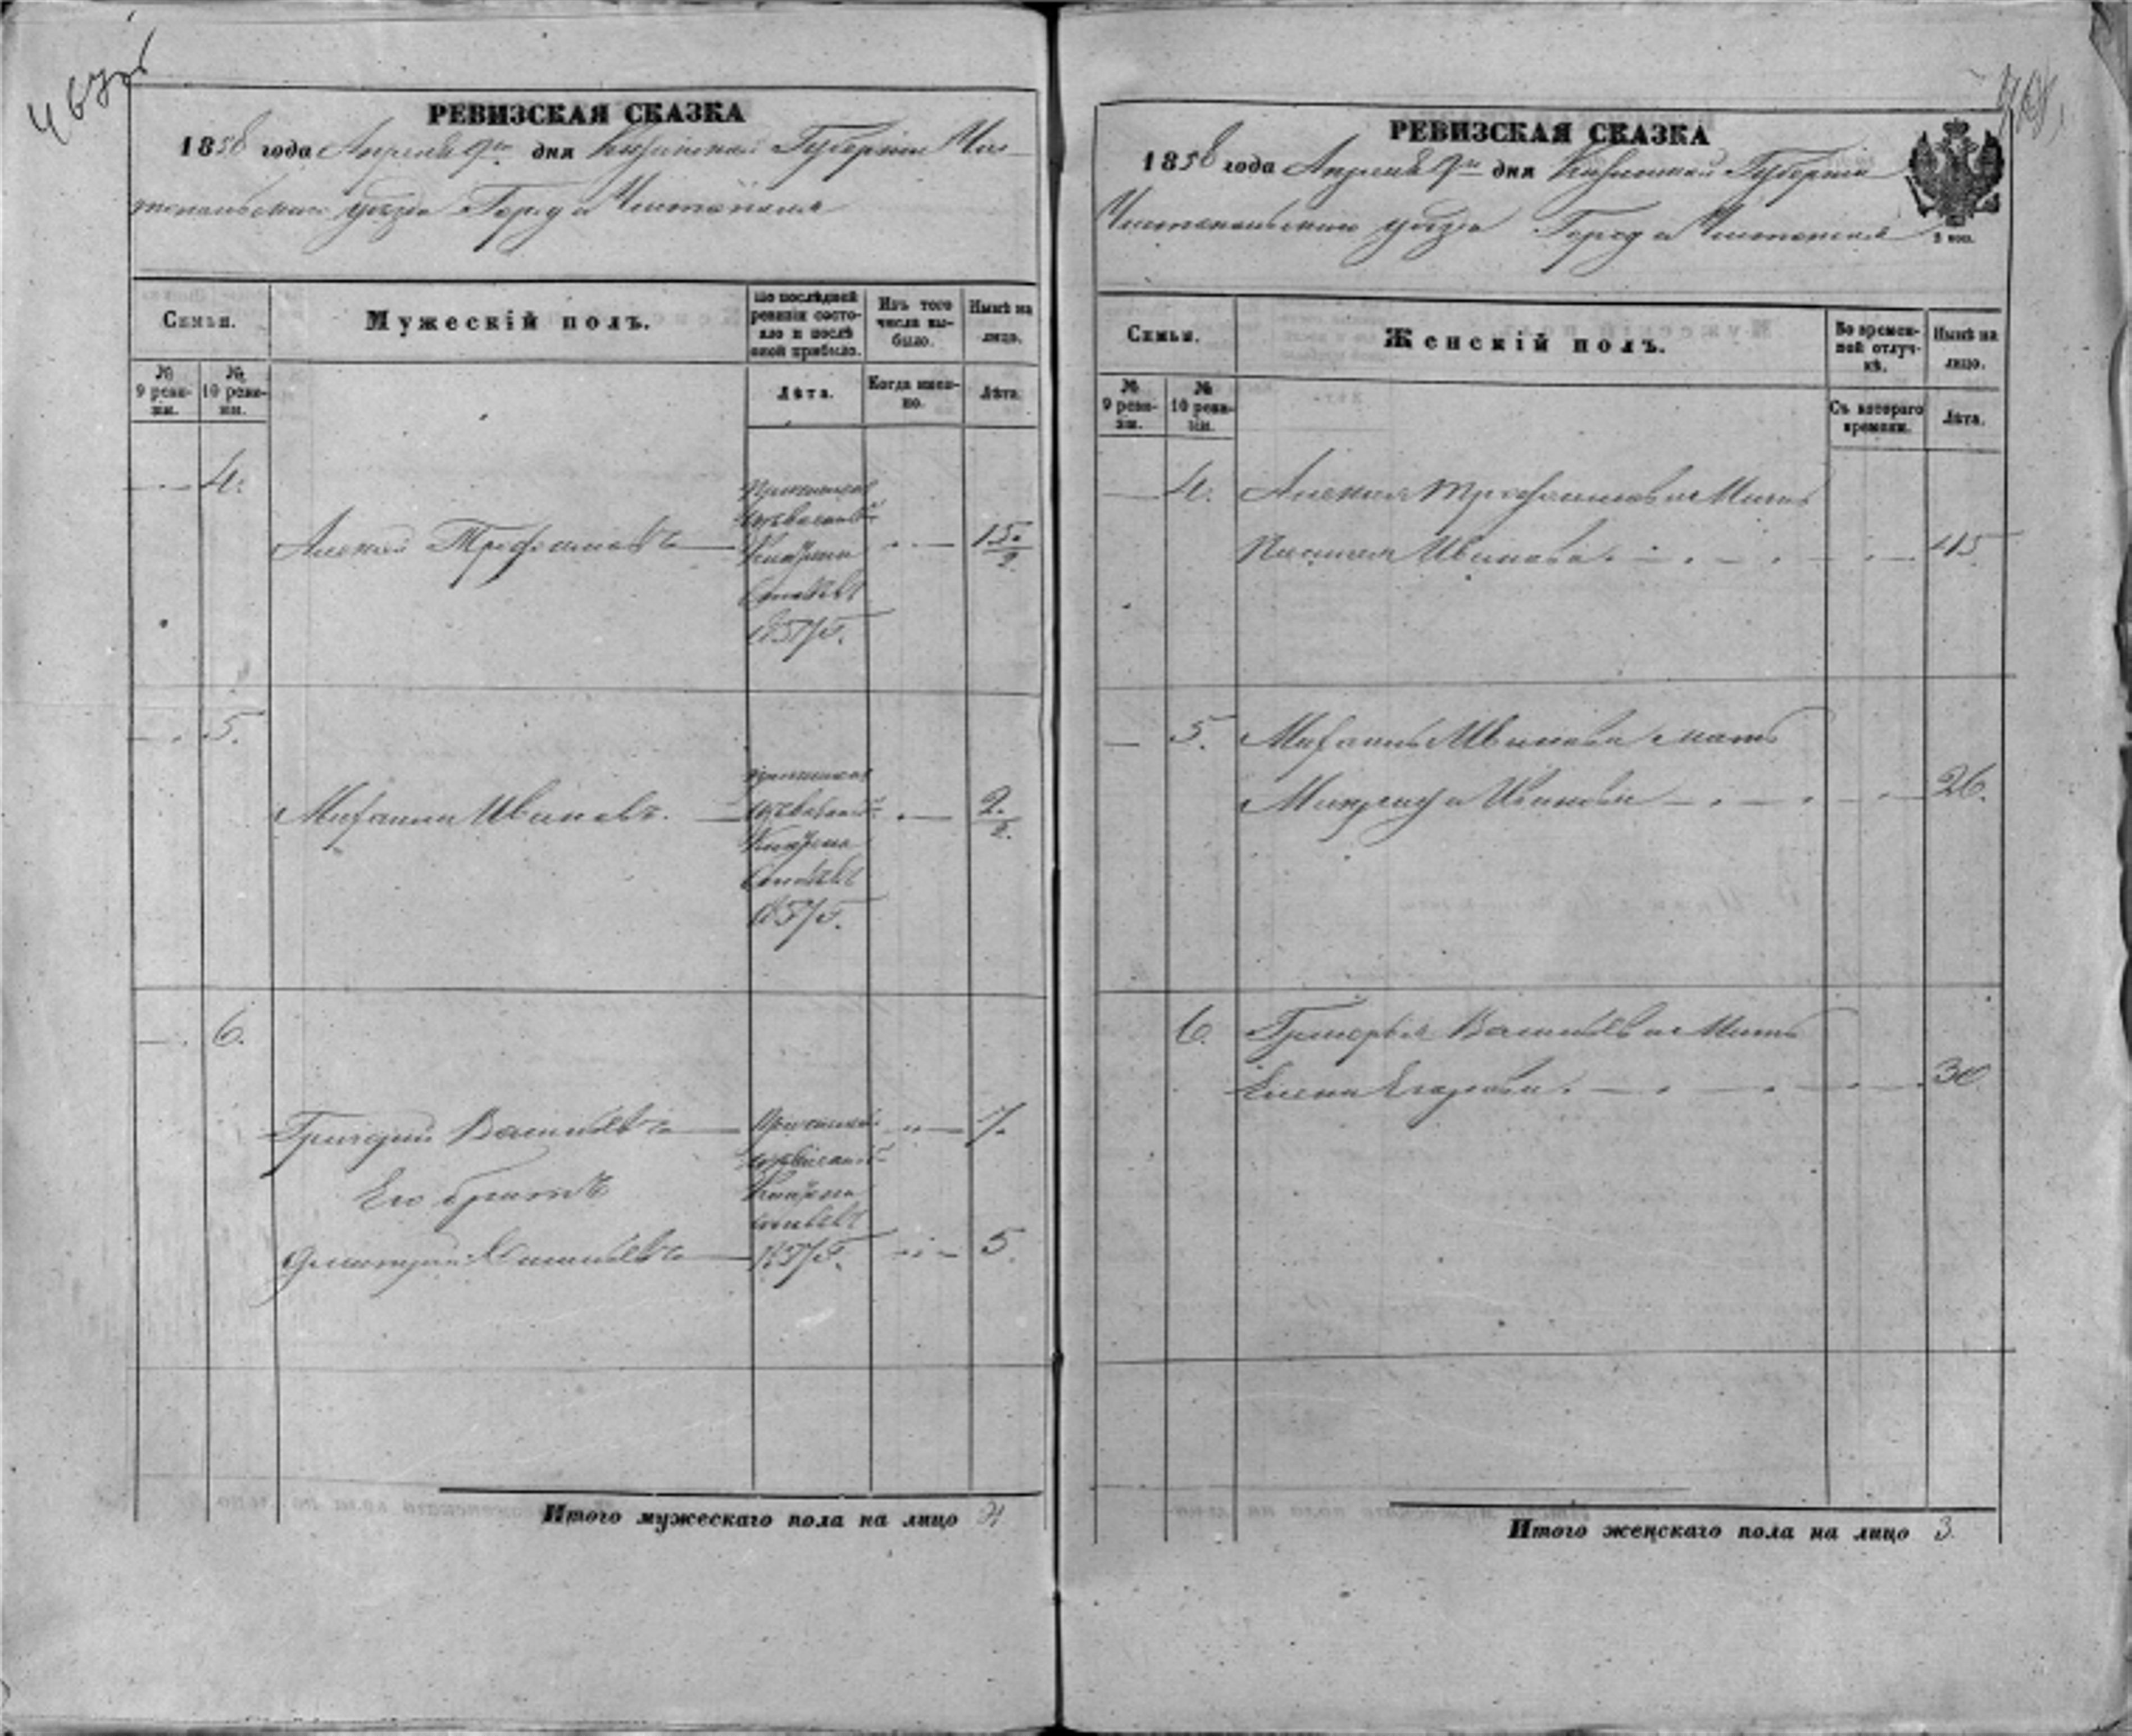 РЕВИЗСКАЯ СКАЗКА
1858 года Апреля 9го дня Казанской Губернiи Чис-
топольскаго уѣзда Города Чистополя
Семьи.
Мужескiй полъ.
По послѣдней ревизiи состояло и послѣ оной прибыло.
Изъ того числа выбыло.
Нынѣ на лицо.
№ 9 ревизiи.
№ 10 ревизiи.
Лѣта.
Когда именно.
Лѣта.
4.
Алексей Трофимовъ
15.
1857 г.
5.
Михаилъ Ивановъ.
2.
1857 г.
6.
Григорий Васильевъ
7.
Его братъ
Дмитрий Васильевъ
1857 г.
5.
Итого мужескаго пола на лицо 4
РЕВИЗСКАЯ СКАЗКА
1858 года Апреля 9го дня Казанской Губернiи
Чистопольскаго уѣзда Города Чистополя
2 коп.
Семьи.
Женскiй полъ.
Во временной отлучкѣ.
Нынѣ на лицо.
№ 9 ревизiи.
№ 10 ревизiи.
Съ котораго времени.
Лѣта.
4. Алексея Трофимова Мать
Ивановa. 45
5. Михаила Иванова мать
Ивановa 26.
6. Григорья Васильева Мать
Елена Егорова. 30
Итого женскаго пола на лицо 3.